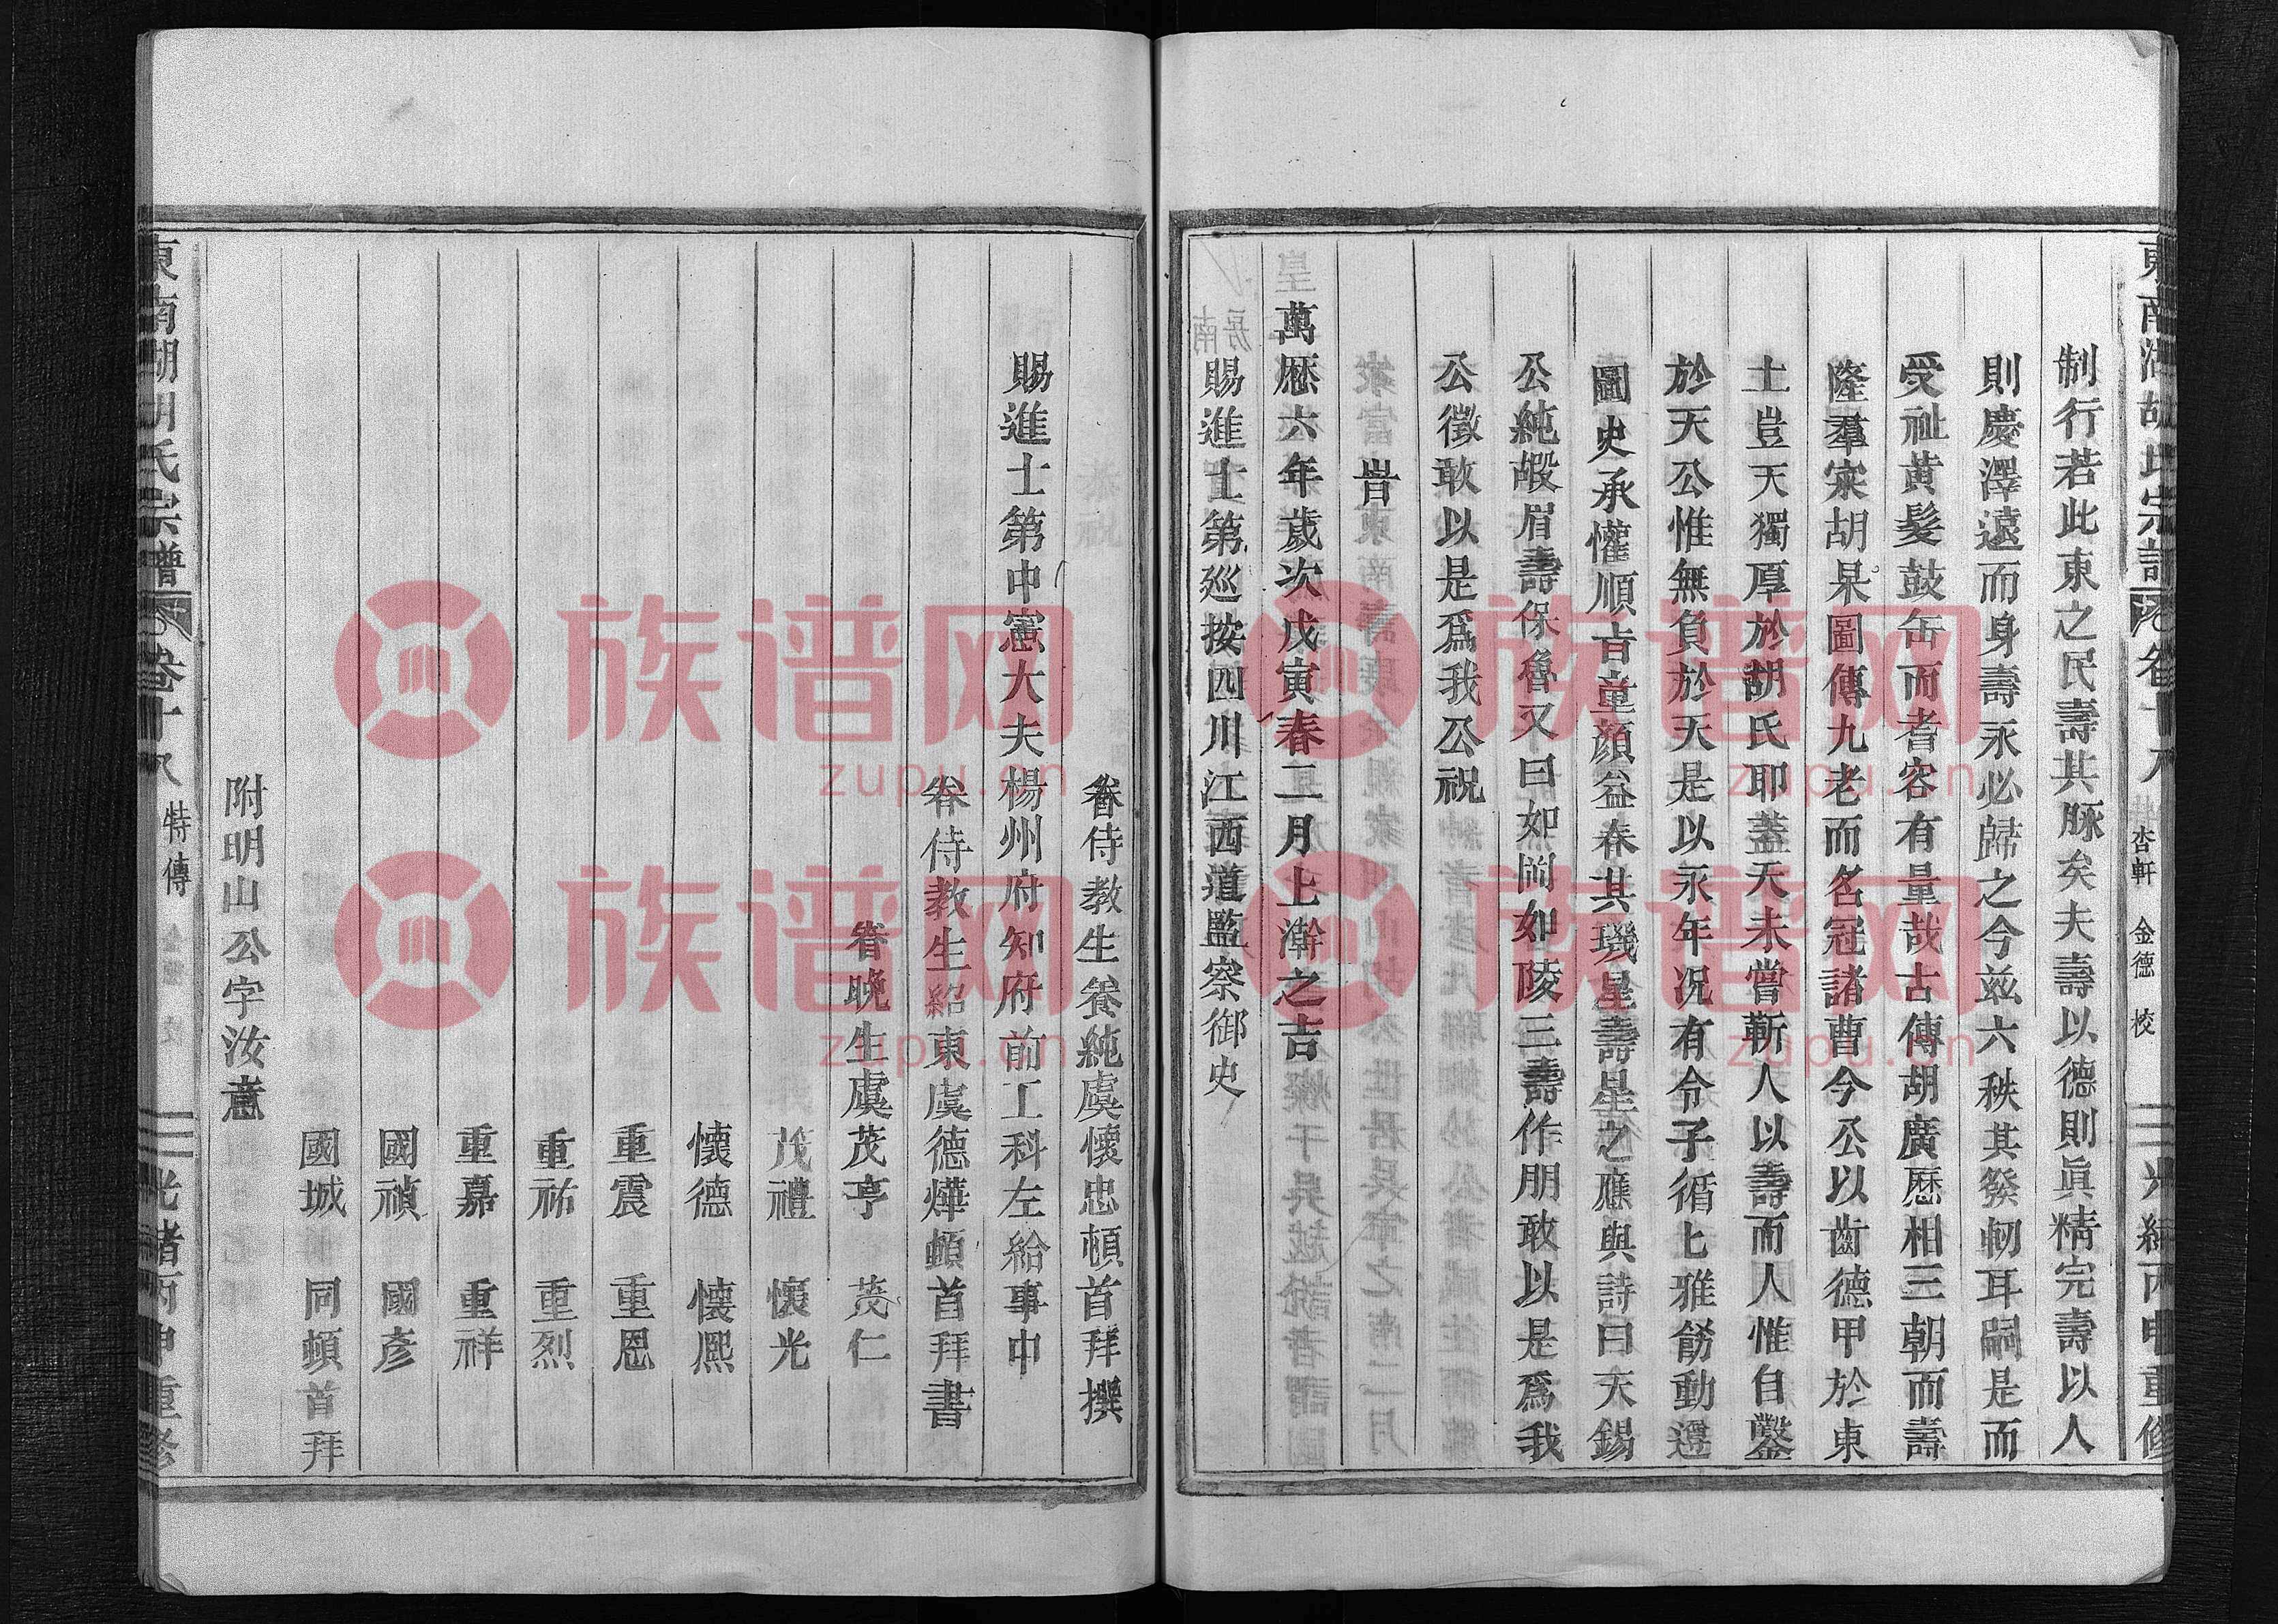 東南湖胡氏宗譜 卷十八 杏軒 金德 校 光緒丙申重修
制行若此東之民壽其脉矣夫壽以德則眞精完壽以人
則慶澤遠而身壽永必歸之今玆六秩其發軔耳嗣是而
受祉黄髮鼓缶而耆容有量哉古傳胡廣歷相三朝而壽
隆羣寀胡杲圖傳九老而名冠諸曹今公以齒德甲於東
土豈天獨厚於胡氏耶葢天未嘗靳人以壽而人惟自鑿
於天公惟無負於天是以永年况有令子循匕雅飭動遵
圖史承懽順㫖童顔益春其璣星壽星之應與詩曰天錫
公純嘏眉壽保魯又曰如岡如陵三壽作朋敢以是爲我
公徵敢以是爲我公祝
旹
萬歷六年歲次戊寅春二月上澣之吉
賜進士第廵按四川江西道監察御史
眷侍教生養純虞懷忠頓首拜撰
賜進士第中憲大夫楊州府知府前工科左給事中
眷侍教生紹東虞德燁頓首拜書
眷晚生虞茂亨 茂仁
茂禮 懷光
懷德 懷熙
重震 重恩
重祐 重烈
重嘉 重祥
國禎 國彥
國城 同頓首拜
附明山公字汝意
東南湖胡氏宗譜 卷十八 特傳 光緒丙申重修
族谱网
zupu.cn
族谱网
zupu.cn
族谱网
zupu.cn
族谱网
zupu.cn